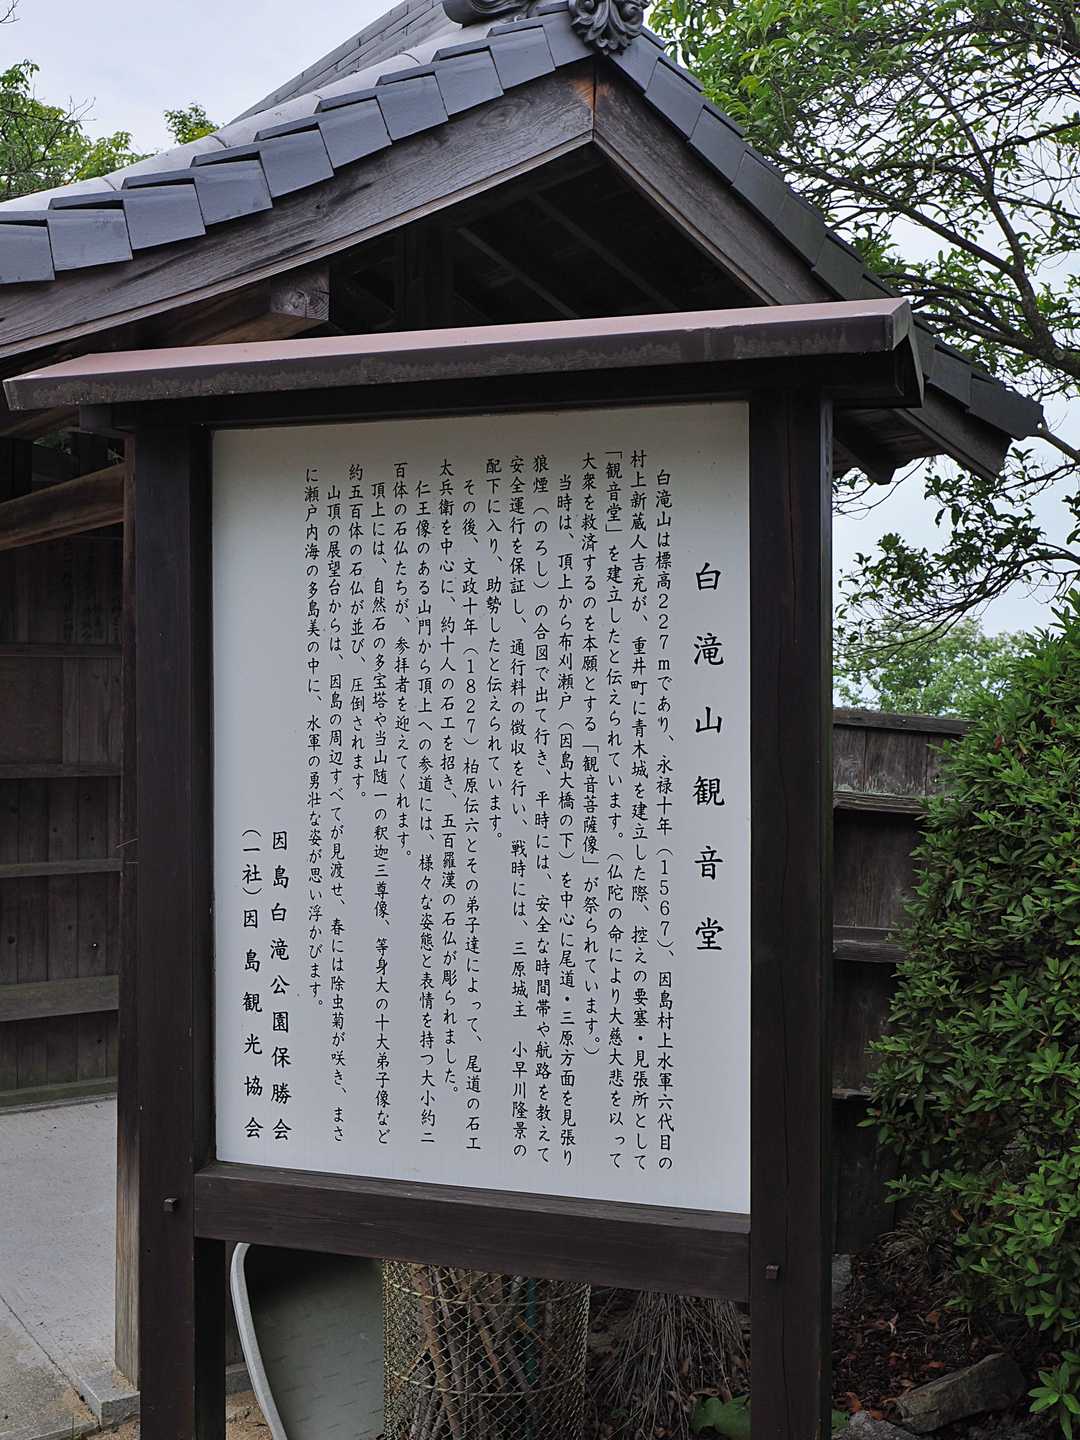 白滝山観音堂
白滝山は標高227mであり、永禄十年（1567）、因島村上水軍六代目の
村上新蔵人吉充が、重井町に青木城を建立した際、控えの要塞・見張所として
「観音堂」を建立したと伝えられています。（仏陀の命により大慈大悲を以って
大衆を救済するのを本願とする「観音菩薩像」が祭られています。）
当時は、頂上から布刈瀬戸（因島大橋の下）を中心に尾道・三原方面を見張り
狼煙（のろし）の合図で出て行き、平時には、安全な時間帯や航路を教えて
安全運行を保証し、通行料の徴収を行い、戦時には、三原城主　小早川隆景の
配下に入り、助勢したと伝えられています。
その後、文政十年（1827）柏原伝六とその弟子達によって、尾道の石工
太兵衛を中心に、約十人の石工を招き、五百羅漢の石仏が彫られました。
仁王像のある山門から頂上への参道には、様々な姿態と表情を持つ大小約二
百体の石仏たちが、参拝者を迎えてくれます。
頂上には、自然石の多宝塔や当山随一の釈迦三尊像、等身大の十大弟子像など
約五百体の石仏が並び、圧倒されます。
山頂の展望台からは、因島の周辺すべてが見渡せ、春には除虫菊が咲き、まさ
に瀬戸内海の多島美の中に、水軍の勇壮な姿が思い浮かびます。
因島白滝公園保勝会
（一社）因島観光協会